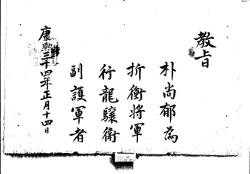 教旨
朴尚郁為
折衝將軍
行龍驤衛
副護軍者
康熙三十四年正月十四日